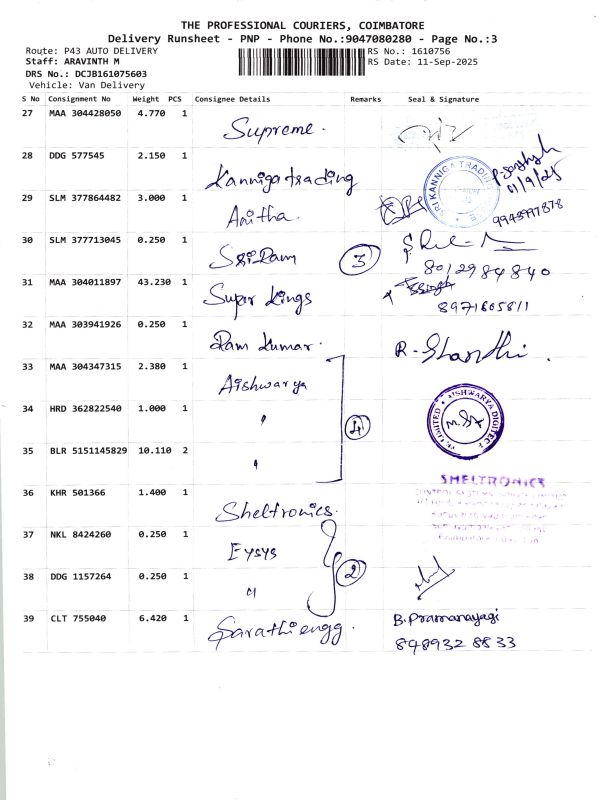 THE PROFESSIONAL COURIERS, COIMBATORE
Delivery Runsheet - PNP - Phone No.:9047080280 - Page No.:3
Route: P43 AUTO DELIVERY
RS No.: 1610756
Staff: ARAVINTH M
RS Date: 11-Sep-2025
DRS No.: DCJB161075603
Vehicle: Van Delivery
S No Consignment No Weight PCS Consignee Details Remarks Seal & Signature
27 MAA 304428050 4.770 1 Supreme.
28 DDG 577545 2.150 1 Kanniga trading
SRI KANNIGA TRADING
29 SLM 377864482 3.000 1 Anitha
30 SLM 377713045 0.250 1 Sri Ram 3
8012984840
31 MAA 304011897 43.230 1 Super Kings
8971605811
32 MAA 303941926 0.250 1 Ram Kumar. R. Shanthi.
33 MAA 304347315 2.380 1 Aishwarya
34 HRD 362822540 1.000 1 " 4
AISHWARYA DIGITECH
LIMITED
35 BLR 5151145829 10.110 2 "
36 KHR 501366 1.400 1 Sheltronics.
SHELTRONICS
37 NKL 8424260 0.250 1 Eysys
38 DDG 1157264 0.250 1 " 2
39 CLT 755040 6.420 1 Sarathi engg.
B. Pramanayagi
848932 8833